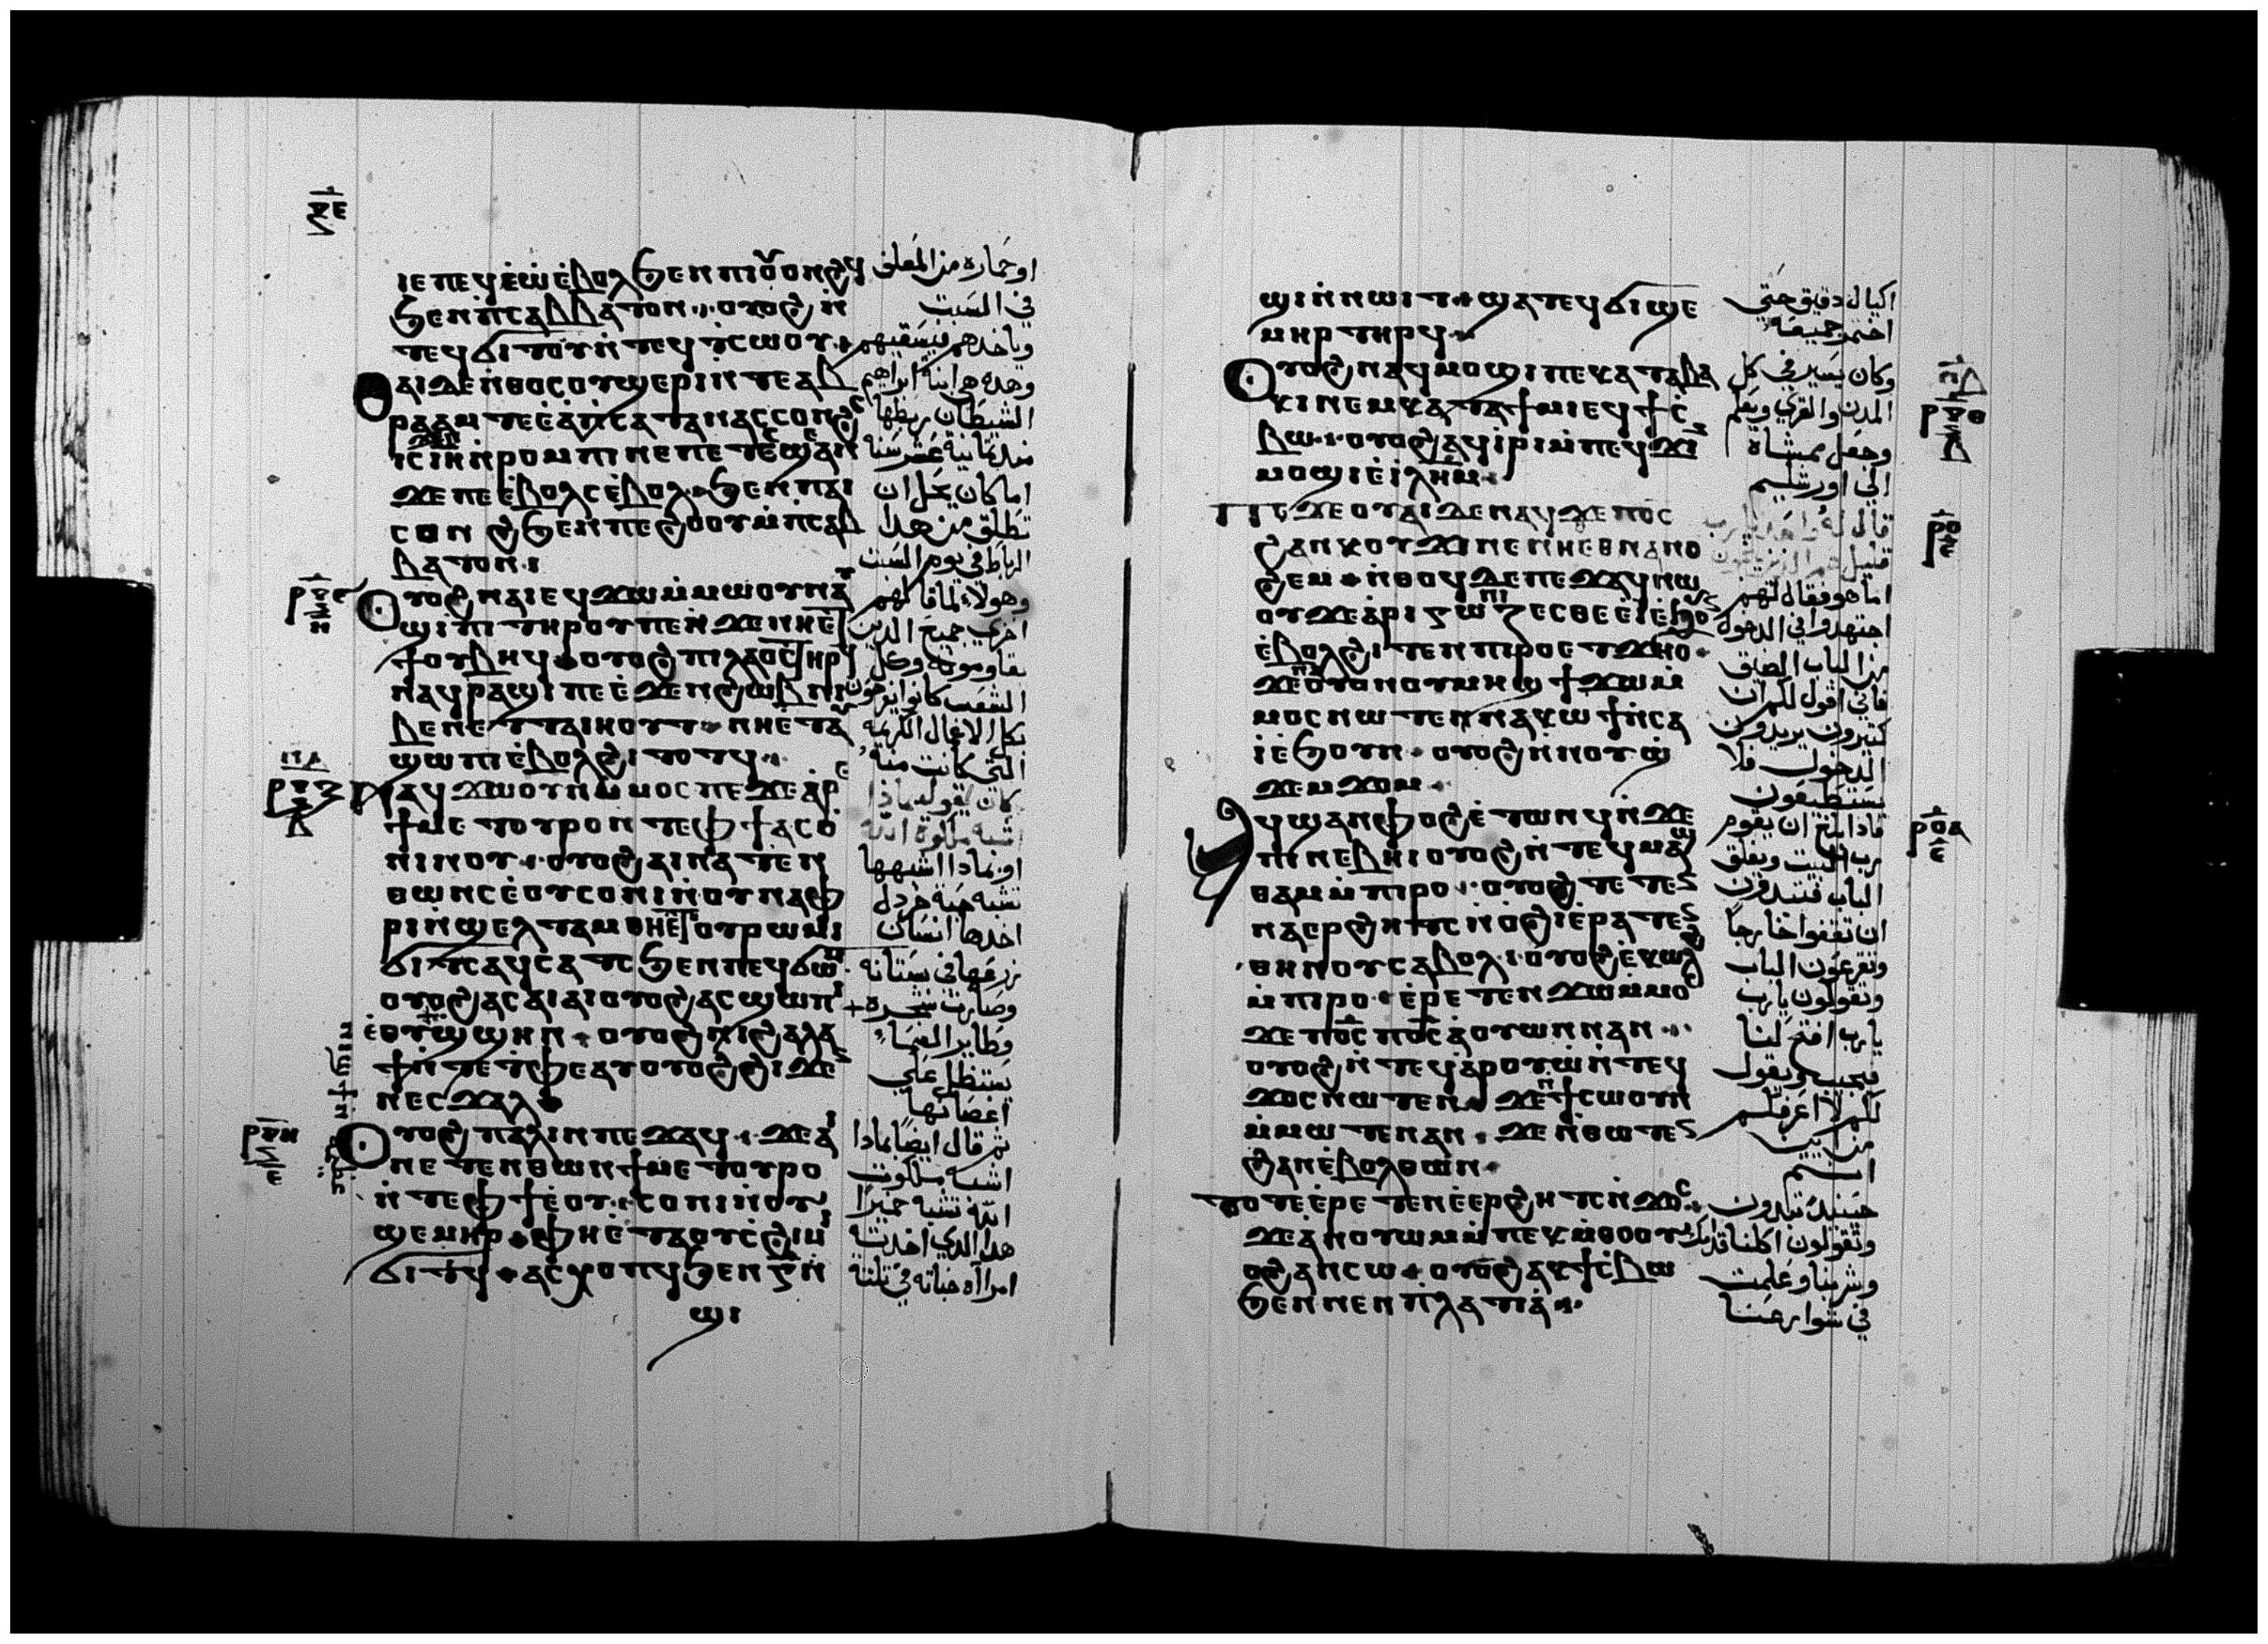 ⲝⲉ
ⲓⲉ ⲡⲉϥⲉⲱ ⲉⲃⲟⲗ ϧⲉⲛ ⲡⲓⲟⲩⲟⲛϩϥ
ϧⲉⲛ ⲡⲥⲁⲃⲃⲁⲧⲟⲛ ⲟⲩⲟϩ ⲛ
ⲧⲉϥϭⲓⲧⲟⲩ ⲛⲧⲉϥⲧⲥⲱⲟⲩ
ⲑⲁⲓ ⲇⲉ ⲛⲑⲟⲥ ⲟⲩϣⲉⲣⲓ ⲛⲧⲉ ⲁⲃ
ⲣⲁⲁⲙ ⲧⲉ ⲉⲁ ⲡⲥⲁⲧⲁⲛⲁⲥ ⲥⲟⲛϩⲥ
ⲓⲥ ⲓⲏ ⲛⲣⲟⲙⲡⲓ ⲛⲉ ⲡⲉⲧⲥⲉϣⲁⲛ
ϫⲉ ⲡⲉ ⲉⲃⲟⲗⲥ ⲉⲃⲟⲗ ϧⲉⲛ ⲡⲁⲓ
ⲥⲟⲛϩ ϧⲉⲛ ⲡⲉϩⲟⲟⲩ ⲙⲡⲥⲁⲃ
ⲃⲁⲧⲟⲛ
ⲟⲩⲟϩ ⲛⲁⲓ ⲉϥϫⲱ ⲙⲙⲱⲟⲩ ⲛⲁⲩ
ϣⲓⲡⲓ ⲧⲏⲣⲟⲩ ⲡⲉ ⲛϫⲉ ⲛⲏⲉⲧ
ϯⲟⲩⲃⲏϥ ⲟⲩⲟϩ ⲡⲓⲗⲁⲟⲥ ⲧⲏⲣϥ
ⲛⲁϥⲣⲁϣⲓ ⲡⲉ ⲉϫⲉⲛ ϩⲱⲃ ⲛⲓ
ⲃⲉⲛ ⲉⲧⲧⲁⲓⲏⲟⲩⲧ ⲛⲏⲉⲧⲁⲩ
ϣⲱⲡⲓ ⲉⲃⲟⲗ ϩⲓⲧⲟⲧϥ
ⲛⲁϥϫⲱ ⲟⲩⲛ ⲙⲙⲟⲥ ⲡⲉ ϫⲉ ⲁⲣⲉ
ϯⲙⲉⲧⲟⲩⲣⲟ ⲛⲧⲉ ⲫϯ ⲁⲥⲟ
ⲛⲓ ⲛⲟⲩ ⲟⲩⲟϩ ⲁⲓⲛⲁⲧⲉⲛ
ⲑⲱⲛⲥ ⲉⲟⲩ ⲥⲟⲛⲓ ⲛⲟⲩⲛⲁⲫ
ⲣⲓ ⲛϣⲉⲗⲧⲁⲙ ⲑⲏⲉⲧⲉ ⲟⲩⲣⲱⲙⲓ
ϭⲓⲧⲥ ⲁϥⲥⲁⲧⲥ ϧⲉⲛ ⲡⲉϥϭⲱⲙ
ⲟⲩⲟϩ ⲁⲥⲁⲓⲁⲓ ⲟⲩⲟϩ ⲁⲥϣⲱⲡⲓ
ⲉⲟⲩϣϣⲏⲛ ⲟⲩⲟϩ ⲛⲓϩⲁⲗⲁ
ϯ ⲛⲧⲉ ⲧⲫⲉ ⲁⲩⲟⲩⲟϩ ϩⲓϫⲉⲛ
ⲛⲉⲥϫⲁⲗ
ⲟⲩⲟϩ ⲡⲁⲗⲓⲛ ⲡⲉϫⲁϥ ϫⲉ ⲁⲓ
ⲛⲉⲧⲉⲛⲑⲱⲛ ϯⲙⲉⲧⲟⲩⲣⲟ
ⲛⲧⲉ ⲫϯ ⲉⲟⲩ ⲥⲟⲛⲓ ⲛⲟⲩ
ϣⲉⲙⲏⲣ ⲫⲏⲉⲧⲁ ⲟⲩⲥϩⲓⲙⲓ
ϭⲓⲧϥ ⲁⲥⲭⲟⲡϥ ϧⲉⲛ ⲅ ⲛ
ϣⲓ
او حماره من المعلف
في السبت
وياخدهم فيسقيهم
وهده هي ابنة ابراهيم
الشيطان ربطها
مند تمانية عشر سنه
اما كان يحل ان
تطلق من هدا
الرباط في يوم السبت
وهولاء لما قالهم
اخزي جميع الدين
يقاوموته وكل
الشعب كانوا يفرحون
بكل الافعال الكريمه
التي كانت منه
كان يقول بماذا
تشبه ملكوة الله
او بمادا اشبهها
تشبه حبة خردل
اخدها انسان
زرعها في بستانه
وصارت شجرة
وطاير السما
يستظل علي
اغصانها
ثم قال ايضا بمادا
اشبه ملكوت
الله تشبه خميرا
هدا الدي اخدت
امراه خباته في تلتة
ϣⲓ ⲛⲛⲱⲓⲧ ϣⲁⲧⲉϥϭⲓϣⲉ
ⲙⲏⲣ ⲧⲏⲣϥ
ⲟⲩⲟϩ ⲛⲁϥⲙⲟϣⲓ ⲡⲉ ⲕⲁⲧⲁ ⲃⲁ
ⲕⲓ ⲛⲉⲙ ⲕⲁⲧⲁ ϯⲙⲓ ⲉϥϯⲥ
ⲃⲱ ⲟⲩⲟϩ ⲁϥⲓⲣⲓ ⲙⲡⲉϥϫⲓⲛ
ⲙⲟϣⲓ ⲉⲓⲗⲏⲙ
ⲡⲉϫⲉ ⲟⲩⲁⲓ ⲇⲉ ⲛⲁϥ ϫⲉ ⲡⲟⲥ
ϩⲁⲛⲕⲟⲩϫⲓ ⲛⲉ ⲛⲏⲉⲑⲛⲁⲛⲟ
ϩⲉⲙ ⲛⲑⲟϥ ⲇⲉ ⲡⲉϫⲁϥ ⲛⲱ
ⲟⲩ ϫⲉ ⲁⲣⲓⲁⲅⲱⲛⲓⲍⲉⲥⲑⲉ ⲉⲓ ⲉϧⲟⲩⲛ
ⲉⲃⲟⲗ ϩⲓⲧⲉⲛ ⲡⲓⲣⲟ ⲉⲧϫⲏⲟⲩ
ϫⲉ ⲟⲩⲟⲛ ⲟⲩⲙⲏϣ ϯϫⲱ ⲙ
ⲙⲟⲥ ⲛⲱⲧⲉⲛ ⲛⲁⲕⲱϯ ⲛⲥⲁ
ⲓ ⲉϧⲟⲩⲛ ⲟⲩⲟϩ ⲛⲛⲟⲩϣ
ϫⲉⲙϫⲟⲙ
ⲉϥϣⲁⲛⲫⲟϩ ⲉⲧⲱⲛϥ ⲛϫⲉ
ⲡⲓⲛⲉⲃⲏⲓ ⲟⲩⲟϩ ⲛⲧⲉϥⲙⲁϣ
ⲑⲁⲙ ⲙⲡⲓⲣⲟ ⲟⲩⲟϩ ⲧⲉⲧⲉⲛ
ⲛⲁⲉⲣϩⲏⲧⲥ ⲛⲟϩⲓ ⲉⲣⲁⲧⲉⲛ
ⲑⲏⲛⲟⲩ ⲥⲁⲃⲟⲗ ⲟⲩⲟϩ ⲉⲕⲱⲗϩ
ⲙⲡⲓⲣⲟ ⲉⲣⲉⲧⲉⲛϫⲱ ⲙⲙⲟⲥ
ϫⲉ ⲡⲟⲥ ⲡⲟⲥ ⲁⲟⲩⲱⲛ ⲛⲁⲛ
ⲟⲩⲟϩ ⲛⲧⲉϥⲁⲣⲟⲩⲱ ⲛⲧⲉϥ
ϫⲟⲥ ⲛⲱⲧⲉⲛ ϫⲉ ⲛϯⲥⲱⲟⲩⲛ
ⲙⲙⲱⲧⲉⲛ ⲁⲛ ϫⲉ ⲛⲑⲱⲧⲉⲛ
ϩⲁⲛⲉⲃⲟⲗ ⲑⲱⲛ
ⲧⲟⲧⲉ ⲉⲣⲉⲧⲉⲛⲉⲉⲣϩⲏⲧⲥ ⲛϫⲟⲥ
ϫⲉ ⲁⲛⲟⲩⲱⲙ ⲙⲡⲉⲕⲙⲑⲟ ⲟⲩ
ⲟϩ ⲁⲛⲥⲱ ⲟⲩⲟϩ ⲁⲕϯⲥⲃⲱ
ϧⲉⲛ ⲛⲉⲛⲡⲗⲁⲧⲓⲁ
اكيال دقيق حتي
اختمر جميعه
وكان يسير في كل
المدن والقري ويعلم
وجعل ممشاه
الي اورشليم
قال له واحد يارب
قليل هم الذين ينجون
اما هو فقال لهم
اجتهدوا في الدخول
من الباب الضيق
فاني اقول لكم ان
كتيرون يريدون
الدخول فلا
يستطيعون
فادا بلغ ان يقوم
رب البيت ويغلق
الباب فتبتدون
ان تقفوا خارجا
وتقرعون الباب
وتقولون يارب
يارب افتح لنا
فيجيب ويقول
لكم لا اعرفكم
من اين
انتم
حينيد تبتدون
وتقولون اكلنا قدامك
وشربنا وعلمت
في شوارعنا